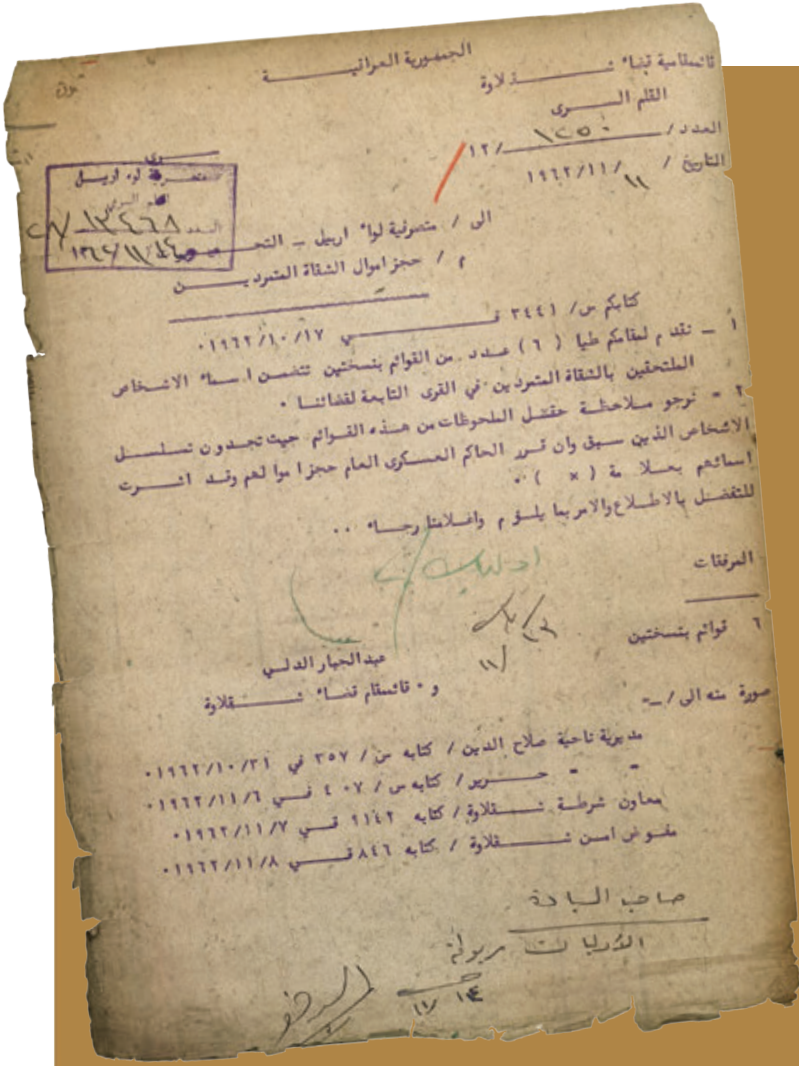 الجمهورية العراقيـــــــة
قائممقامية قضاء شـــــقلاوة
القلم الســـرى
العدد / ١٢٥٠ / ١٢
التاريخ / ١١ / ١١ / ١٩٦٢
ســـرى
متصرفية لواء اربيــل
القلم السري
العدد ١٣٤٦٨
الى / متصرفية لواء اربيل ــ
م / حجز اموال الشقاة المتمرديـــن
كتابكم س/ ٣٤٤١ فــــــي ١٩٦٢/١٠/١٧ ٠
١ ــ نقدم لمقامكم طيا ( ٦ ) عـدد من القوائم بنسختين تتضمن اسماء الاشخاص
الملتحقين بالشقاة المتمردين في القرى التابعة لقضائنـا ٠
٢ ــ نرجو ملاحظـة حقـل الملحوظات من هـذه القـوائم حيث تجـدون تسلسـل
الاشخاص الذين سـبق وان قـرر الحاكم العسـكرى العـام حجز اموالهم وقـد اشـرت
اسمائهم بعـلامة ( × ) ٠
للتفضـل بالاطـلاع والامر بما يلـؤم واعـلامنا رجـاء ٠ ٠
المرفقات
٦ قوائم بنسختين
عبدالجبار
و ٠ قائممقام قضـاء شـــــقلاوة
صورة منه الى / ــ
مديرية ناحية صلاح الدين / كتابه س / ٣٥٧ في ١٩٦٢/١٠/٣١ ٠
" " حــرير / كتابه س / ٤٠٧ فــي ١٩٦٢/١١/٦ ٠
معاون شرطـة شــــقلاوة / كتابه ٩١٤٢ فـي ١٩٦٢/١١/٧ ٠
مفـوض امـن شـــــقلاوة / كتابه ٨٤٦ فـــي ١٩٦٢/١١/٨ ٠
صاحب السيادة
الأوليات مربوطة
١١/١٣